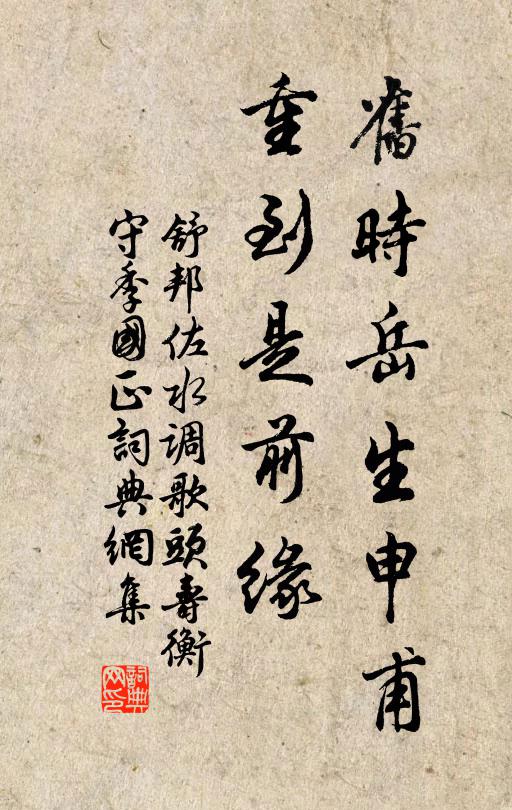 舊時岳生申甫
重到是前緣
舒邦佐水调歌頭壽衡
守季國正詞典網集
詞典网印